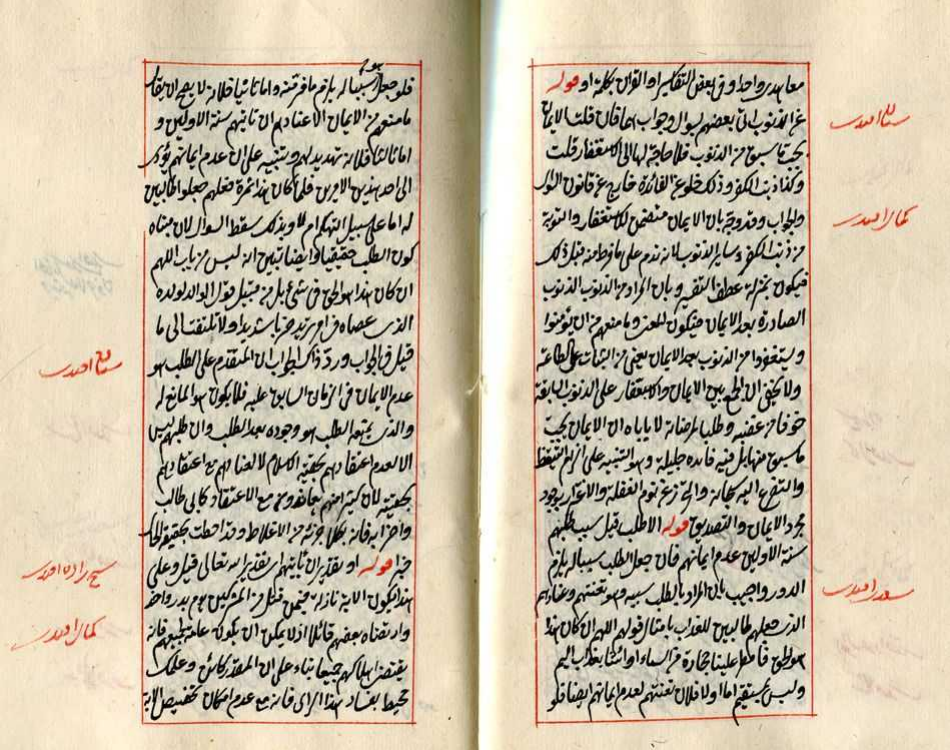 معا بدر واحد وفى بعض التفاسير او القران بكلمة او قوله
عن الذنوب اتى بعضهم بسوال وجواب هما فان قلت الايمان
يجب ما سبق من الذنوب فلا حاجة لها الى الاستغفار قلت
وكذا ذنب الكفر وذلك خلو عن الفائدة خارج عن قانون السوال
والجواب وقد وجه بان الايمان متضمن للاستغفار والتوبة
من ذنب الكفر وساير الذنوب لانه ندم على ما فرط منه قبل ذلك
فيكون بمنزلة عطف التفسير وبان المراد من الذنوب الذنوب
الصادرة بعد الايمان فيكون المعنى وما منعهم من ان يؤمنوا
ويستغفروا من الذنوب بعد الايمان يعنى من الثبات على الطاعة
ولا يخفى ان الجمع بين الايمان والاستغفار على الذنوب السابقة
خوفا من غضبه وطلبا لمرضاته لا ياباه ان الايمان يجب
ما سبق منها بل فيه فائدة جليلة وهو التنبيه على لزوم التيقظ
والتضرع اليه تعالى عن نوم الغفلة والاغترار بوجود
مجرد الايمان والتصديق قوله الا طلب قيل سبب طلبهم
سنة الاولين عدم ايمانهم فان جعل الطلب سببا له يلزم
الدور واجيب بان المراد بالطلب سببه وهو تعنتهم وعنادهم
الذى جعلهم طالبين للعذاب بامثال قولهم اللهم ان كان هذا
هو الحق فامطر علينا حجارة من السماء او ائتنا بعذاب اليم
وليس بمستقيم اما اولا فلان تعنتهم لعدم ايمانهم ايضا فلو
سنان افندى
كمال افندى
سعدى افندى
فلو جعل سببا له يلزم ما فر منه واما ثانيا فلانه لا يصح ان يقال
ما منعهم من الايمان الا عنادهم ان تاتيهم سنة الاولين و
اما ثالثا فلانه تهديد لهم وتنبيه على ان عدم ايمانهم يؤدى
الى احد هذين الامرين فلما كان هذا ثمرة فعلهم جعلوا طالبين
له اما على سبيل التهكم ام لا وبذلك سقط السوال لان مبناه
كون الطلب حقيقيا وايضا تبين انه ليس من باب اللهم
ان كان هذا هو الحق فى شئ بل من قبيل قول الوالد لولده
الذى عصاه فى امر يريد ضربا شديدا ولا تلتفت الى ما
قيل فى الجواب ورد ذاك الجواب ان المتقدم على الطلب هو
عدم الايمان فى الزمان السابق عليه فلا يكون هو المانع له
والذى يمنعه الطلب هو وجوده بعد الطلب وان طلبهم ليس
الا لعدم اعتقادهم بحقية الاسلام لا لعنادهم مع اعتقادهم
بحقيته لان كثيرا منهم معاند مع الاعتقاد كابى طالب
واضرابه فانه بكلا جزئيه من الاغلاط وقد احطت بحقيقة الحال
خبرا قوله او بتقدير ان تاتيهم اى بتقدير الله تعالى قيل وعلى
هذا يكون الاية نازلة فيمن قتل من المشركين يوم بدر واحد
وارتضاه بعضهم قائلا اذ لا يمكن ان يكون عامة لجميعهم فانه
يقتضى اهلاكهم جميعا بناء على ان المقدر كائن وعلمك
محيط بفساد هذا الراى فانه مع عدم امكان تخصيص الاية
سنان افندى
شيخ زاده افندى
كمال افندى